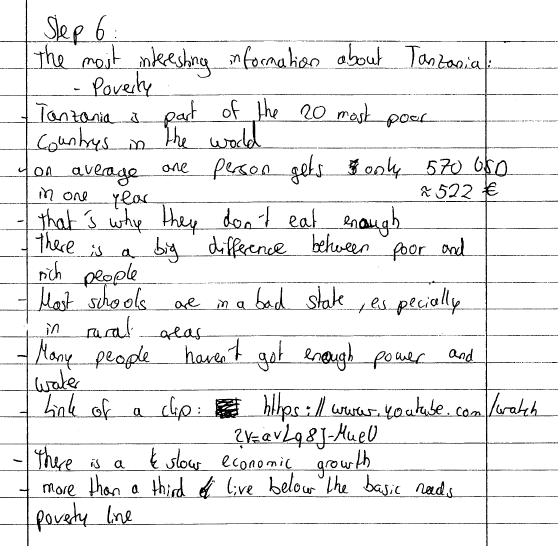 Step 6:
The most interesting information about Tanzania:
- Poverty
- Tanzania is part of the 20 most poor
Countrys in the world
- on average one person gets only 570 USD
in one year ≈ 522 €
- that's why they don't eat enough
- There is a big difference between poor and
rich people
- Most schools are in a bad state, especially
in rural areas
- Many people haven't got enough power and
water
- Link of a clip: https://www.youtube.com/watch
?v=avLq8J-MueU
- There is a slow economic growth
- more than a third live below the basic needs
poverty line